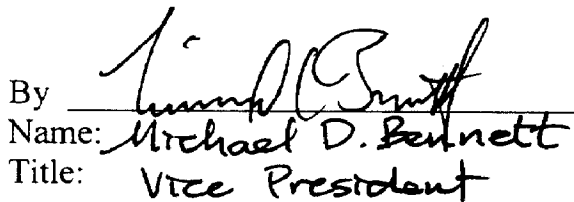 By
Name: Michael D. Bennett
Title: Vice President